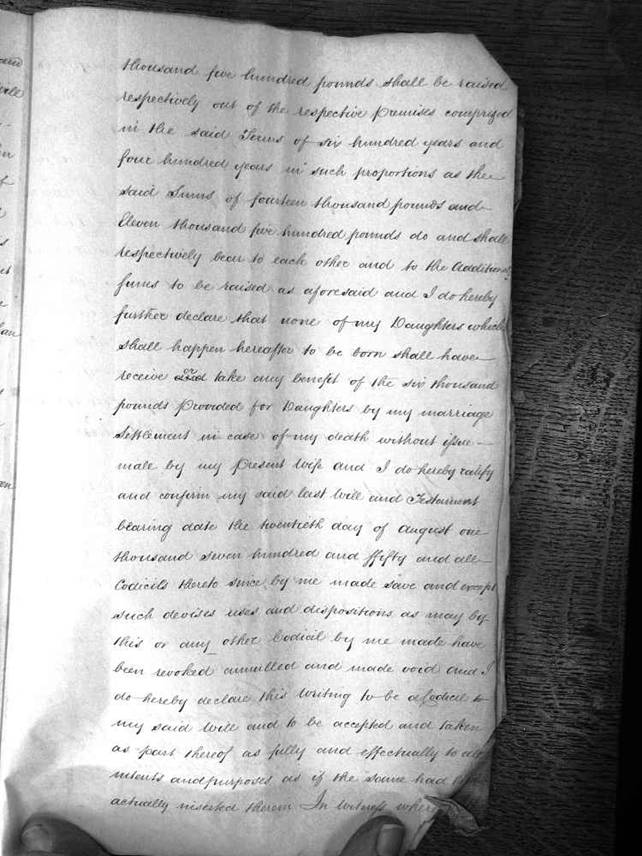 thousand five hundred pounds shall be raised
respectively out of the respective Premises comprized
in the said Terms of six hundred years and
four hundred years in such proportions as the
said Sums of fourteen thousand pounds and
Eleven thousand five hundred pounds do and shall
respectively bear to each other and to the Additional
sums to be raised as aforesaid and I do hereby
further declare that none of my Daughters which
shall happen hereafter to be born shall have
receive or take any benefit of the six thousand
pounds Provided for Daughters by my marriage
Settlement in case of my death without issue
male by my Present Wife and I do hereby ratify
and confirm my said last Will and Testament
bearing date the twentieth day of August one
thousand seven hundred and ffifty and all
Codicils thereto since by me made save and except
such devises uses and dispositions as may by
this or any other Codicil by me made have
been revoked annulled and made void and I
do hereby declare this writing to be a Codicil to
my said Will and to be accepted and taken
as part thereof as fully and effectually to all
intents and purposes as if the same had
actually inserted therein In Witness